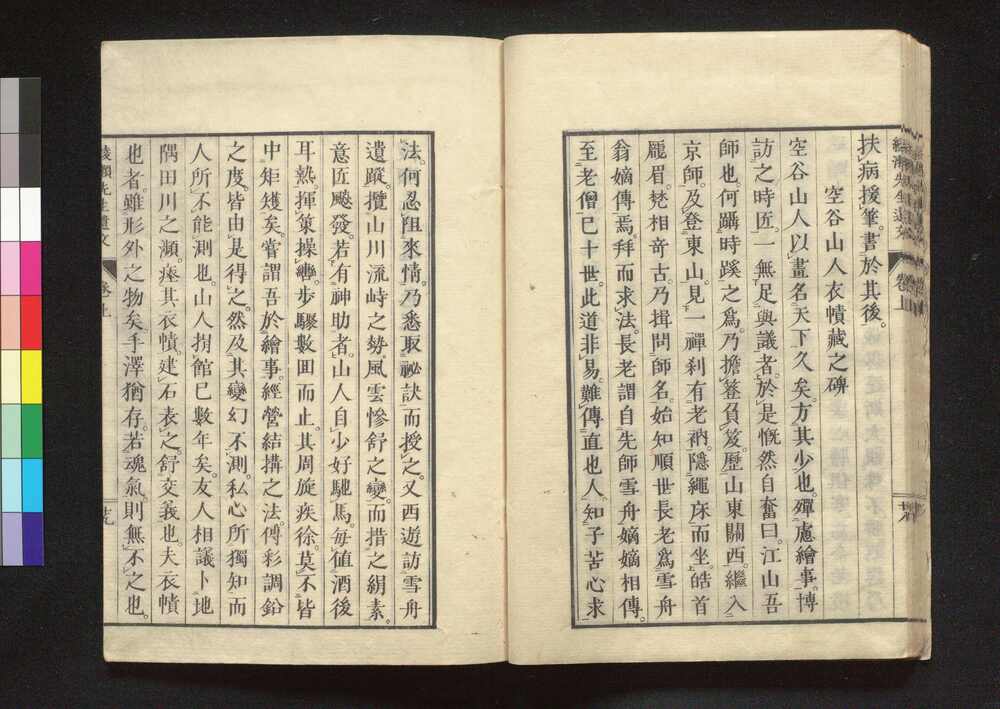 扶病援筆。書於其後。
空谷山人衣幘藏之碑
空谷山人。以畫名天下久矣。方其少也。殫慮繪事。博
訪之時匠。一無足與議者。於是慨然自奮曰。江山吾
師也。何躡時蹊之爲。乃擔簦負笈。歷山東關西。繼入
京師。及登東山。見一禪刹有老衲。隱繩床而坐。皓首
厖眉。梵相奇古。乃揖問師名。始知順世長老爲雪舟
翁嫡傳焉。拜而求法。長老謂自先師雪舟嫡嫡相傳。
至老僧已十世。此道非易。難傳直也人。知子苦心求
法。何忍阻來情。乃悉取祕訣而授之。又西遊訪雪舟
遺蹤。攬山川流峙之勢。風雲慘舒之變。而措之絹素。
意匠飈發。若有神助者。山人自少好馳馬。每値酒後
耳熱。揮策操轡。歩驟數回而止。其周旋疾徐。莫不皆
中矩矱矣。嘗謂吾於繪事。經營結搆之法。傅彩調鉛
之度。皆由是得之。然及其變幻不測。私心所獨知。而
人所不能測也。山人捐館已數年矣。友人相議。卜地
隅田川之瀕。瘞其衣幘。建石表之。舒交義也。夫衣幘
也者。雖形外之物矣。手澤猶存。若魂氣則無不之也。
綾瀬先生遺文
卷上